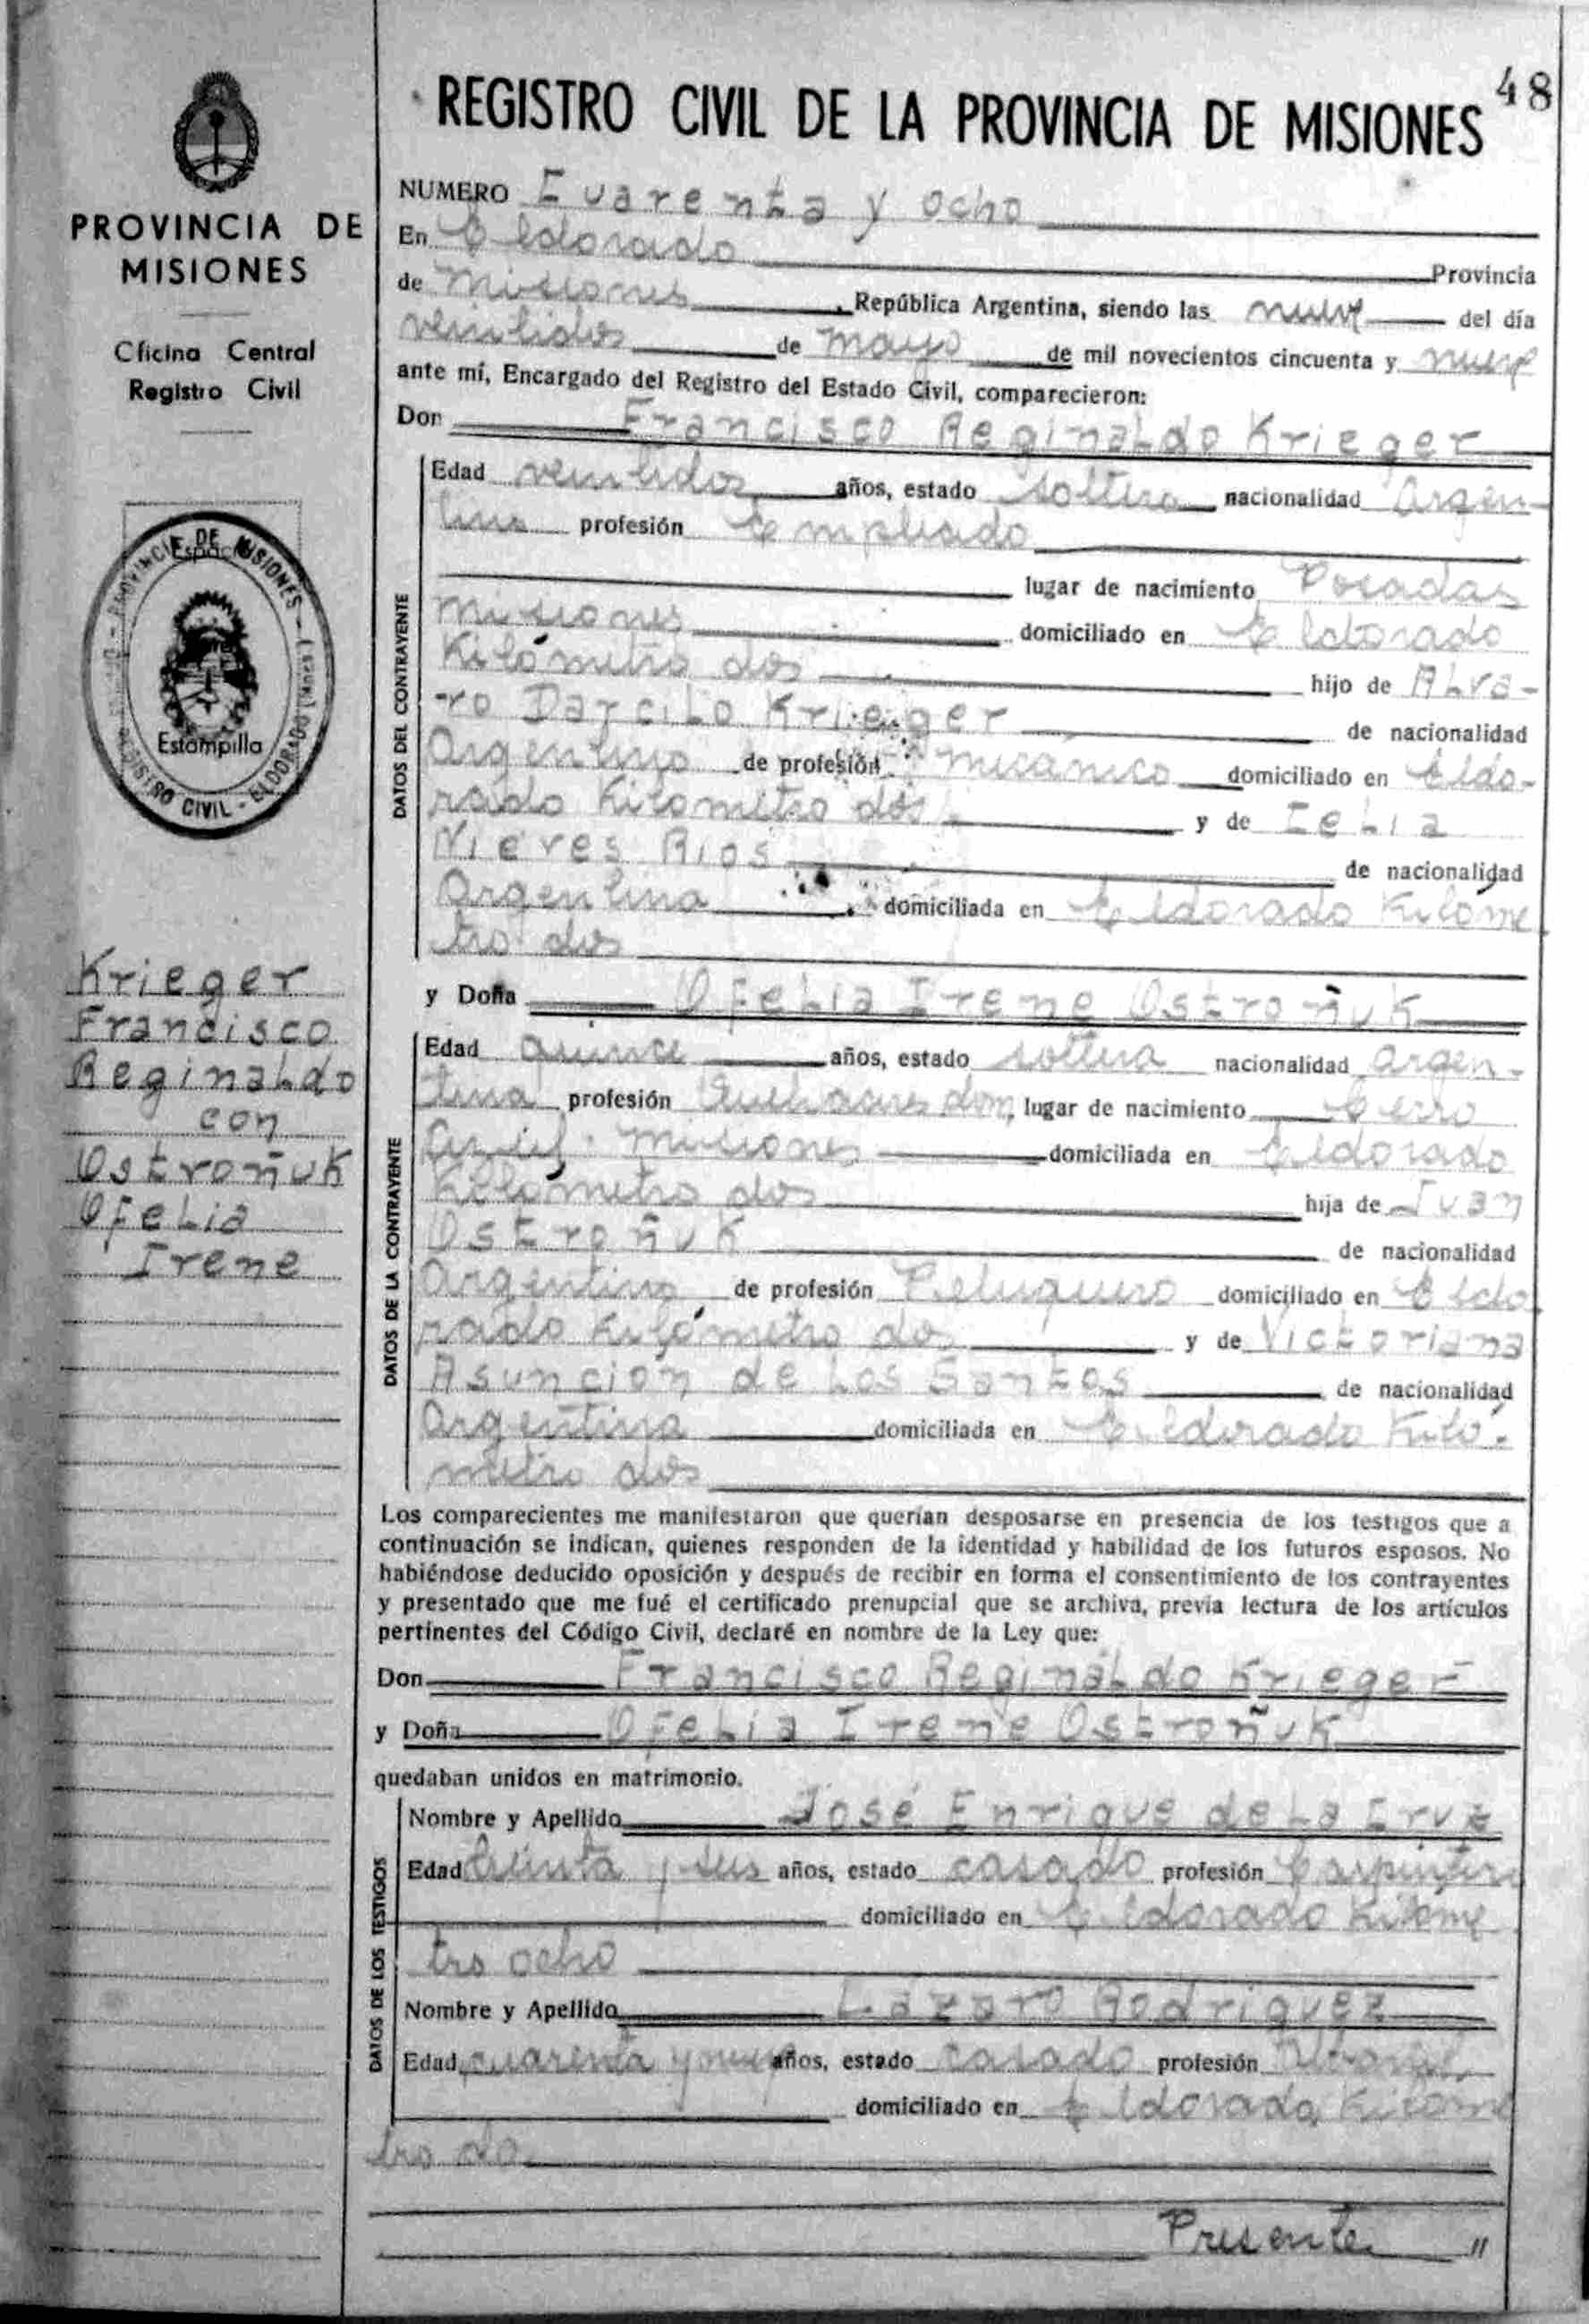 PROVINCIA DE
MISIONES
Oficina Central
Registro Civil
PROVINCIA DE MISIONES
Espacio
Estampilla
REGISTRO CIVIL - ELDORADO (Mnes.)
Krieger
Francisco
Reginaldo
con
Ostroñuk
Ofelia
Irene
48
REGISTRO CIVIL DE LA PROVINCIA DE MISIONES
NUMERO Cuarenta y ocho
En Eldorado Provincia
de Misiones, República Argentina, siendo las nueve del día
veintidos de mayo de mil novecientos cincuenta y nueve
ante mí, Encargado del Registro del Estado Civil, comparecieron:
Don Francisco Reginaldo Krieger
DATOS DEL CONTRAYENTE
Edad veintidos años, estado soltero nacionalidad Argen-
tino profesión Empleado
lugar de nacimiento Posadas
Misiones domiciliado en Eldorado
Kilómetro dos hijo de Alva-
ro Darcilo Krieger de nacionalidad
Argentino de profesión mecánico domiciliado en Eldo-
rado Kilometro dos y de Celia
Nieves Rios de nacionalidad
Argentina domiciliada en Eldorado Kilóme
tro dos
y Doña Ofelia Irene Ostroñuk
DATOS DE LA CONTRAYENTE
Edad quince años, estado soltera nacionalidad Argen-
tina profesión Quehaceres dom, lugar de nacimiento Cerro
Azul - Misiones domiciliada en Eldorado
Kilómetro dos hija de Juan
Ostroñuk de nacionalidad
Argentino de profesión Peluquero domiciliado en Eldo
rado Kilómetro dos y de Victoriana
Asunción de los Santos de nacionalidad
Argentina domiciliada en Eldorado Kiló-
metro dos
Los comparecientes me manifestaron que querían desposarse en presencia de los testigos que a
continuación se indican, quienes responden de la identidad y habilidad de los futuros esposos. No
habiéndose deducido oposición y después de recibir en forma el consentimiento de los contrayentes
y presentado que me fué el certificado prenupcial que se archiva, previa lectura de los artículos
pertinentes del Código Civil, declaré en nombre de la Ley que:
Don Francisco Reginaldo Krieger
y Doña Ofelia Irene Ostroñuk
quedaban unidos en matrimonio.
DATOS DE LOS TESTIGOS
Nombre y Apellido José Enrique de la Cruz
Edad treinta y seis años, estado casado profesión Carpintero
domiciliado en Eldorado Kilóme
tro ocho
Nombre y Apellido Lazaro Rodriguez
Edad cuarenta y nueve años, estado casado profesión
domiciliado en Eldorado Kilóme
tro dos
Presente "